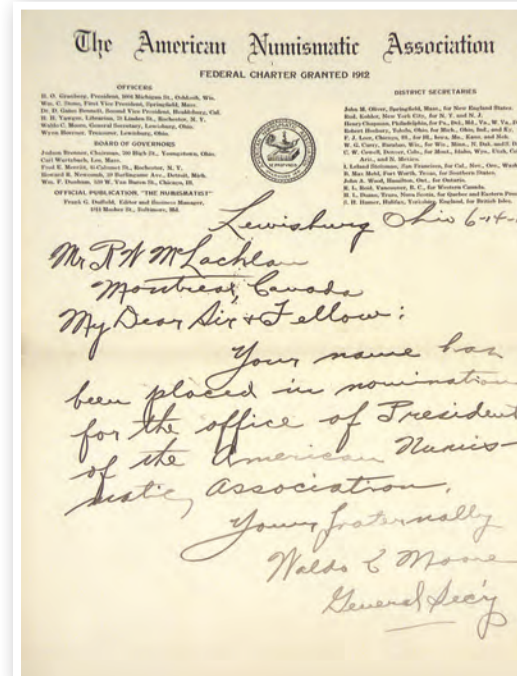 The American Numismatic Association
FEDERAL CHARTER GRANTED 1912
OFFICERS
H. O. Granberg, President, Michigan St., Oshkosh, Wis.
Wm. C. Stone, First Vice President, Springfield, Mass.
Second Vice President,
H. H. Yawger, Librarian, 78 Linden St., Rochester, N. Y.
Waldo C. Moore, General Secretary, Lewisburg, Ohio.
Treasurer, Lewisburg, Ohio.
BOARD OF GOVERNORS
Judson Brenner, Chairman, High St., Youngstown, Ohio.
Carl Wurtzbach, Lee, Mass.
Fred E. Merritt, St., Rochester, N. Y.
Howard R. Newcomb, Ave., Detroit, Mich.
Wm. F. Dunham, Van Buren St., Chicago, Ill.
OFFICIAL PUBLICATION, "THE NUMISMATIST"
Frank G. Duffield, Editor and Business Manager,
St., Baltimore, Md.
DISTRICT SECRETARIES
John M. Oliver, Springfield, Mass., for New England States.
Rud. Kohler, New York City, for N. Y. and N. J.
Henry Chapman, Philadelphia, for Pa., Del., Md., Va., W. Va.
Toledo, Ohio, for Mich., Ohio, Ind., and Ky.
for Ill., Iowa, Mo., Kans. and Neb.
for Wis., Minn., N. Dak. and
Denver, Colo., for Mont., Idaho, Wyo., Utah,
Ariz., and N. Mexico.
San Francisco, for Cal., Nev., Ore.,
B. Max Mehl, Fort Worth, Texas, for Southern States.
John A. Wood, Hamilton, Ont., for Ontario.
Vancouver, B. C., for Western Canada.
Truro, Nova Scotia, for Quebec and Eastern
Halifax, Yorkshire, England, for British Isles.
Lewisburg Ohio 6-14-
Mr R W McLachlan
Montreal, Canada
My Dear Sir & Fellow:
Your name has
been placed in nomination
for the office of President
of the American Numis-
matic Association.
Yours fraternally
Waldo C Moore
General Sec'y